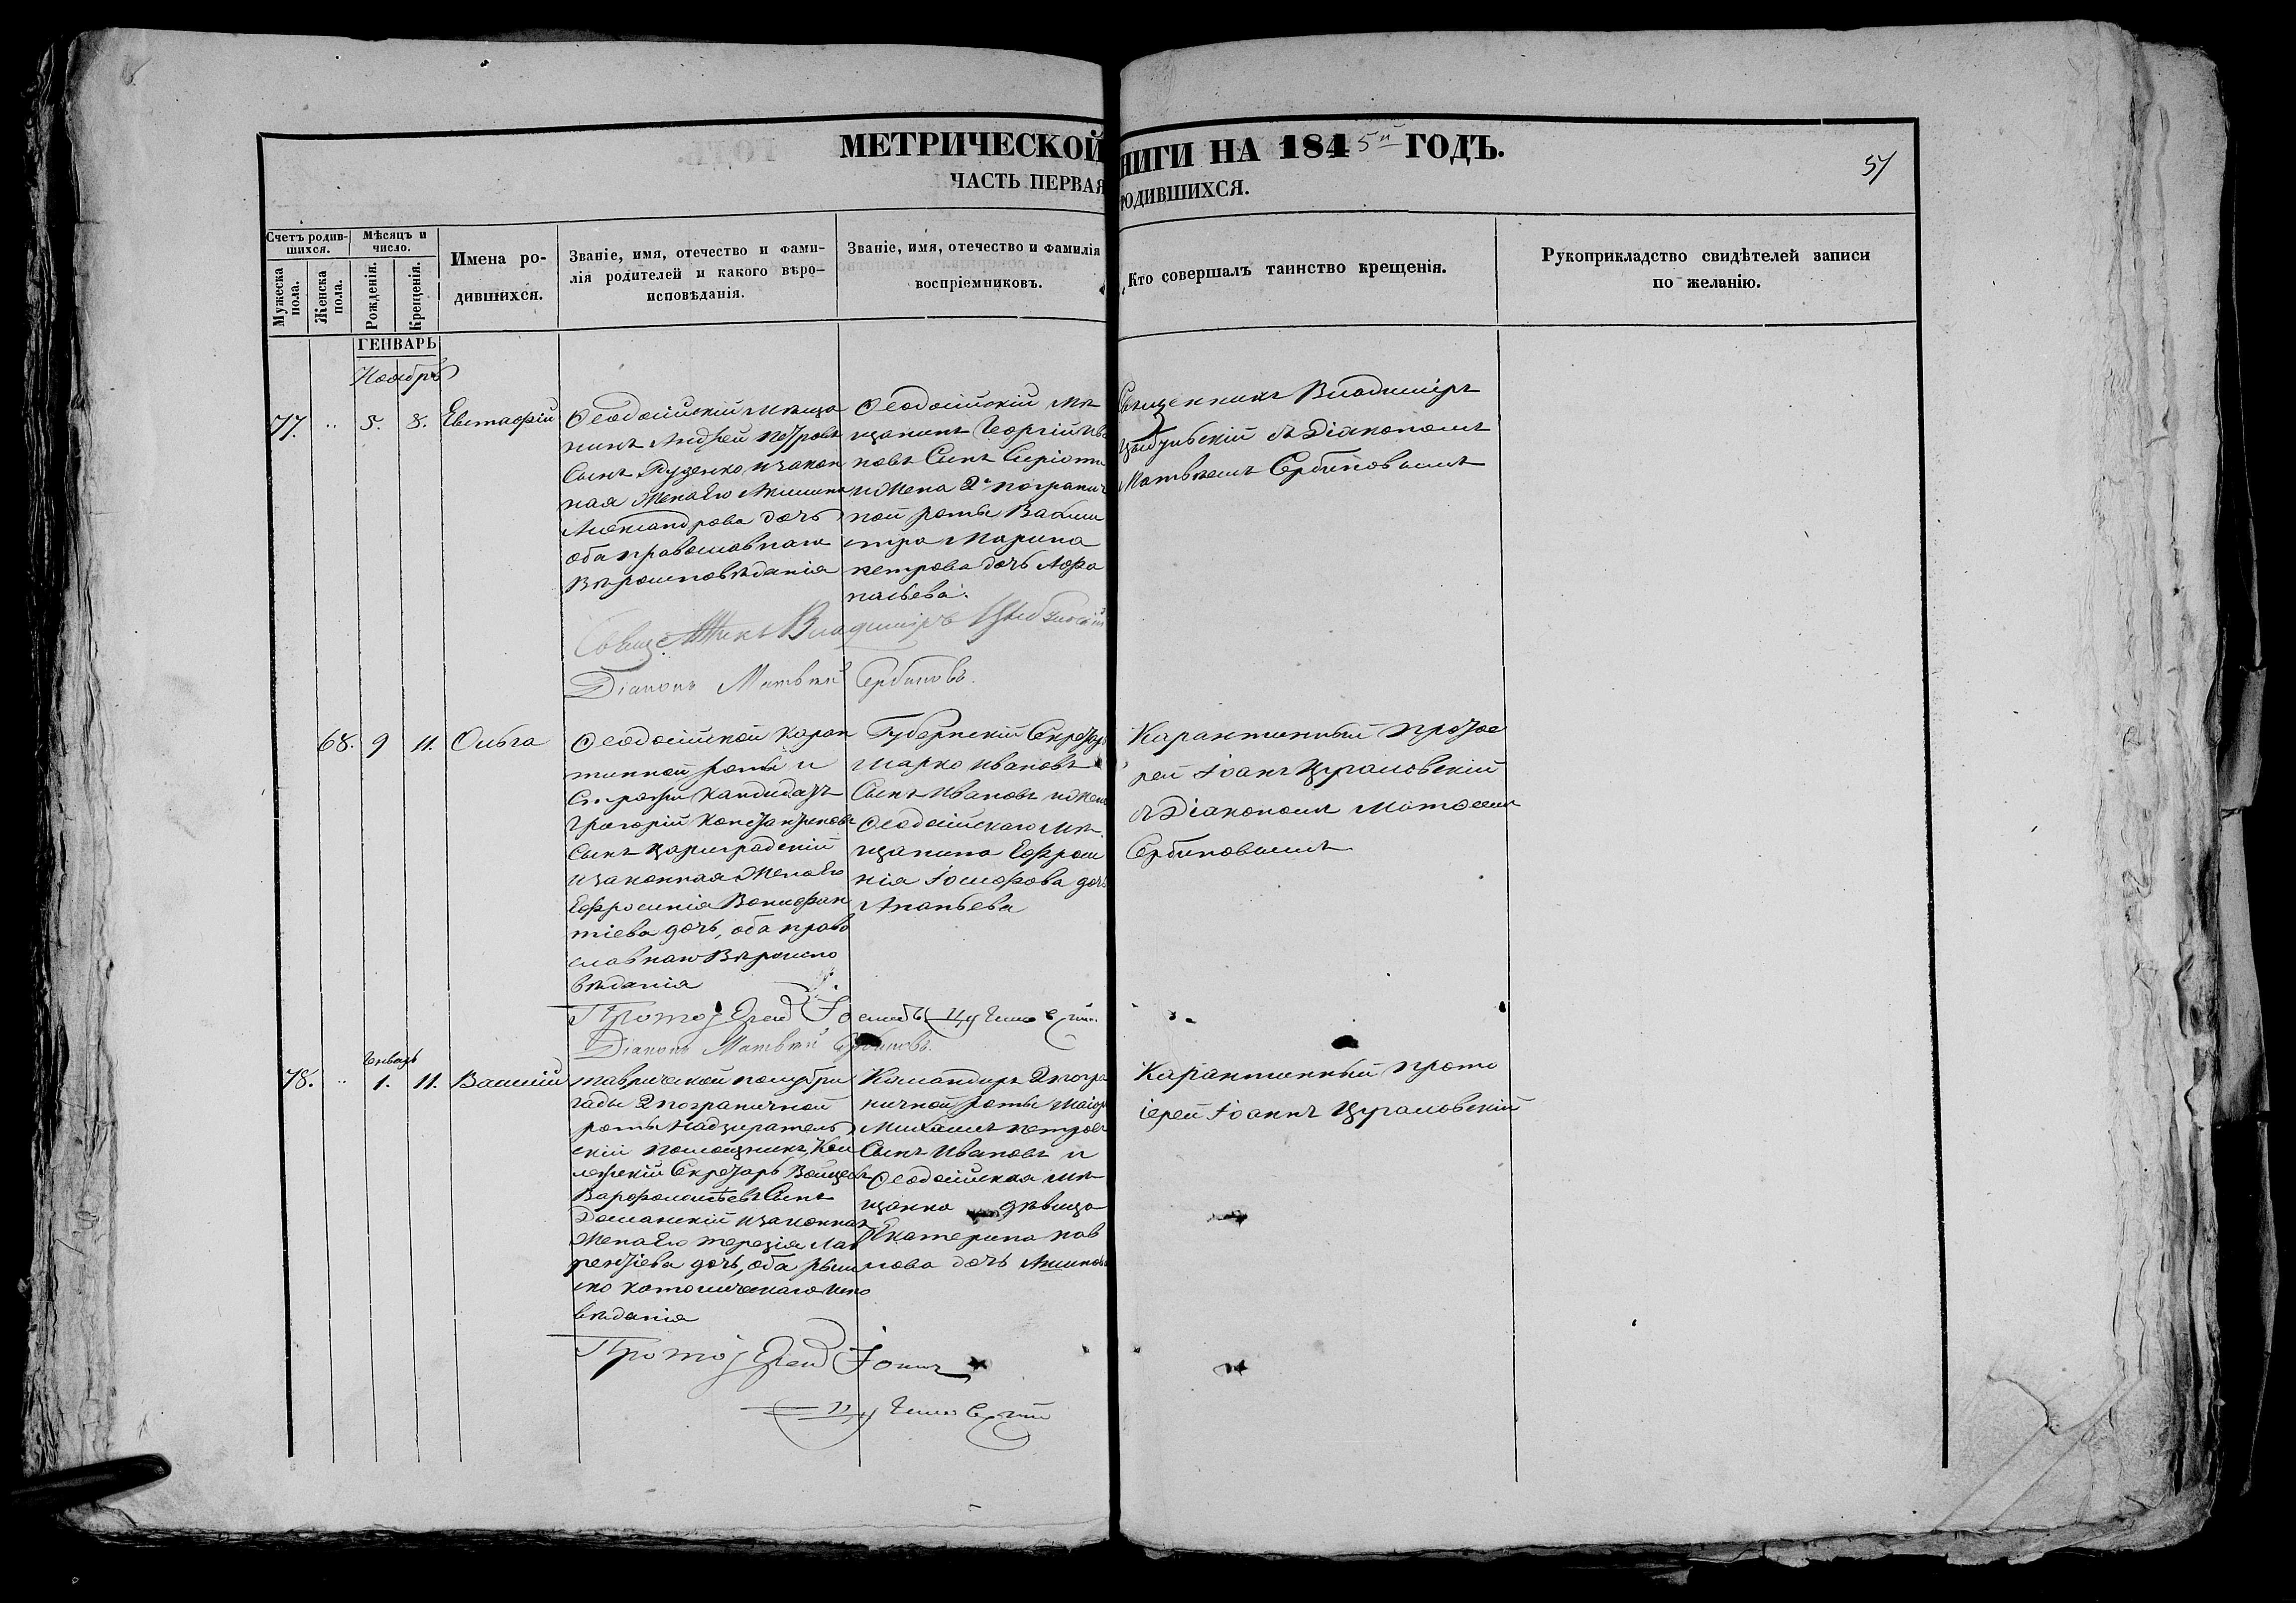 МЕТРИЧЕСКОЙ
НИГИ НА 1845й ГОДЪ.
57
ЧАСТЬ ПЕРВАЯ
РОДИВШИХСЯ.
Счетъ родив-
шихся.
Мужеска пола.
Женска пола.
Мѣсяцъ и
число.
Рожденія.
Крещенія.
Имена ро-
дившихся.
Званіе, имя, отечество и фами-
лія родителей и какого вѣро-
исповѣданія.
Званіе, имя, отечество и фамилія
воспріемниковъ.
Кто совершалъ таинство крещенія.
Рукоприкладство свидѣтелей записи
по желанію.
ГЕНВАРЬ
Ноябрь
77. " 5. 8. Евстафій
Ѳеодосійскій мѣща
нинъ Андрей Петровъ
Сынъ Руденко и закон
ная жена Его
Александрова дочь
оба православнаго
Вѣроисповѣданія
Ѳеодосійскій мѣ
щанинъ Георгій Ива
новъ Сынъ
и жена 2й погранич
ной роты Вахми
стра Марина
петрова дочь Афа
насьева.
Священникъ Владиміръ
Цыбульскій съ Діакономъ
Матвѣемъ Сербиновымъ
Священникъ Владиміръ Цыбульскій
Діаконъ Матвѣй Сербиновъ.
68. 9 11. Ольга
Ѳеодосійской Каран
тинной роты и
Стражи Кандидатъ
Григорій Константиновъ
Сынъ Цариградскій
и законная жена Его
Ефросинія Вонифан
тіева дочь, оба право
славнаго Вѣроиспо
вѣданія
Губернскій Секретарь
Марко Ивановъ
Сынъ Ивановъ и жена
Ѳеодосійскаго мѣ
щанина Ефроси
нія Іосифова дочь
Ананьева
Карантинный протое
рей Іоанъ Цугаловскій
съ Діакономъ Матѳеемъ
Сербиновымъ
Діаконъ Матвѣй Сербиновъ.
Генварь
78. " 1. 11. Василій
таврической полубри
гады 2 пограничной
роты Надзиратель
скій помощникъ, Кол
лежскій Секретарь
Варфоломеевъ Сынъ
Доманскій и законная
жена Его терезія Лав
рентіева дочь, оба рим
ско католическаго испо
вѣданія
Командиръ 2 погра
ничной роты маіоръ
Михаилъ петровъ
Сынъ Ивановъ и
Ѳеодосійская мѣ
щанка дѣвица
Екатерина пав
лова дочь
Карантинный прото
іерей Іоаннъ Цугаловскій